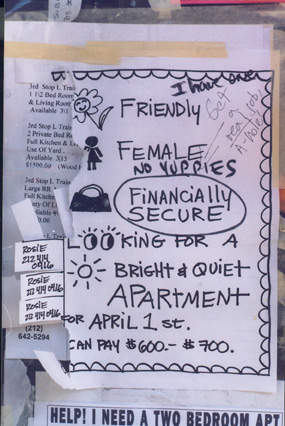 I have one
FRIENDLY
Get
a
real job,
A-hole!
FEMALE
NO YUPPIES
FINANCIALLY
SECURE
LOOKING FOR A
BRIGHT & QUIET
APARTMENT
FOR APRIL 1 st.
CAN PAY $600.- $700.
3rd Stop L Train
1 1\2 Bed Room
& Living Room
Available 3\1
3rd Stop L Train
2 Private Bed R
Full Kitchen
Use Of Yard
Available 3\15
$1500.00 (Wood
3rd Stop L Train
Large RR
Full Kitchen
ROSIE
212 414
0416
ROSIE
212 414
0416
ROSIE
212 414
0416
(212)
642-5294
HELP! I NEED A TWO BEDROOM APT